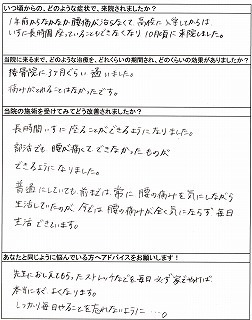 いつ頃からの、どのような症状で、来院されましたか?
1年前からなかなか腰痛が治らなくて高校に入学してからは、
いすに長時間座っていることもできなくなり10月頃に来院しました。
当院に来るまで、どのような治療を、どれくらいの期間され、どのくらいの効果がありましたか?
接骨院に3ヶ月ぐらい通いました。
痛みがとれることはなかったです。
当院の施術を受けてみてどう改善されましたか?
長時間いすに座ることができるようになりました。
部活でも腰が痛くてできなかったものが
できるようになりました。
普通にしていても前は、常に腰の痛みを気にしながら
生活していたのが、今は腰の痛みが全く気にならず毎日
生活できています。
あなたと同じように悩んでいる方へアドバイスをお願いします!
先生におしえてもらったストレッチなどを毎日必ず家でやれば、
本当にすぐよくなります。
しっかり毎日やることを忘れないように…。